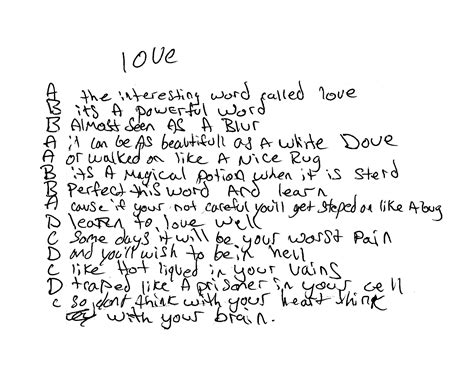 love
A the interesting word called love
B its A powerful word
B Almost seen AS A Blur
A it can be As beautifull as A white Dove
A or walked on like A Nice Rug
B its A Magical potion when it is sterd
B Perfect this word And learn
A cause if your not careful you'll get steped on like A bug
D learen to love well
C Some days it will be your worst Pain
D and you'll wish to be in hell
C like Hot liqued in your vains
D traped like A prisoner in your cell
C so dont think with your heart think
with your brain.